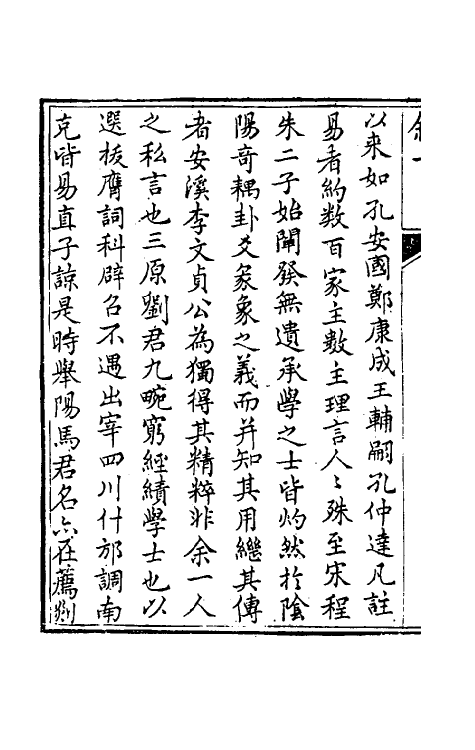 以来如孔安國鄭康成王輔嗣孔仲達凡註
易者約数百家主数主理言人〻殊至宋程
朱二子始闡發無遺承學之士皆灼然於陰
陽奇耦卦爻彖象之義而并知其用繼其傳
者安溪李文貞公為獨得其精粹非余一人
之私言也三原劉君九畹窮經績學士也以
選拔膺詞科辟召不遇出宰四川什邡調南
充皆易直子諒是時舉陽馬君名亦在薦剡